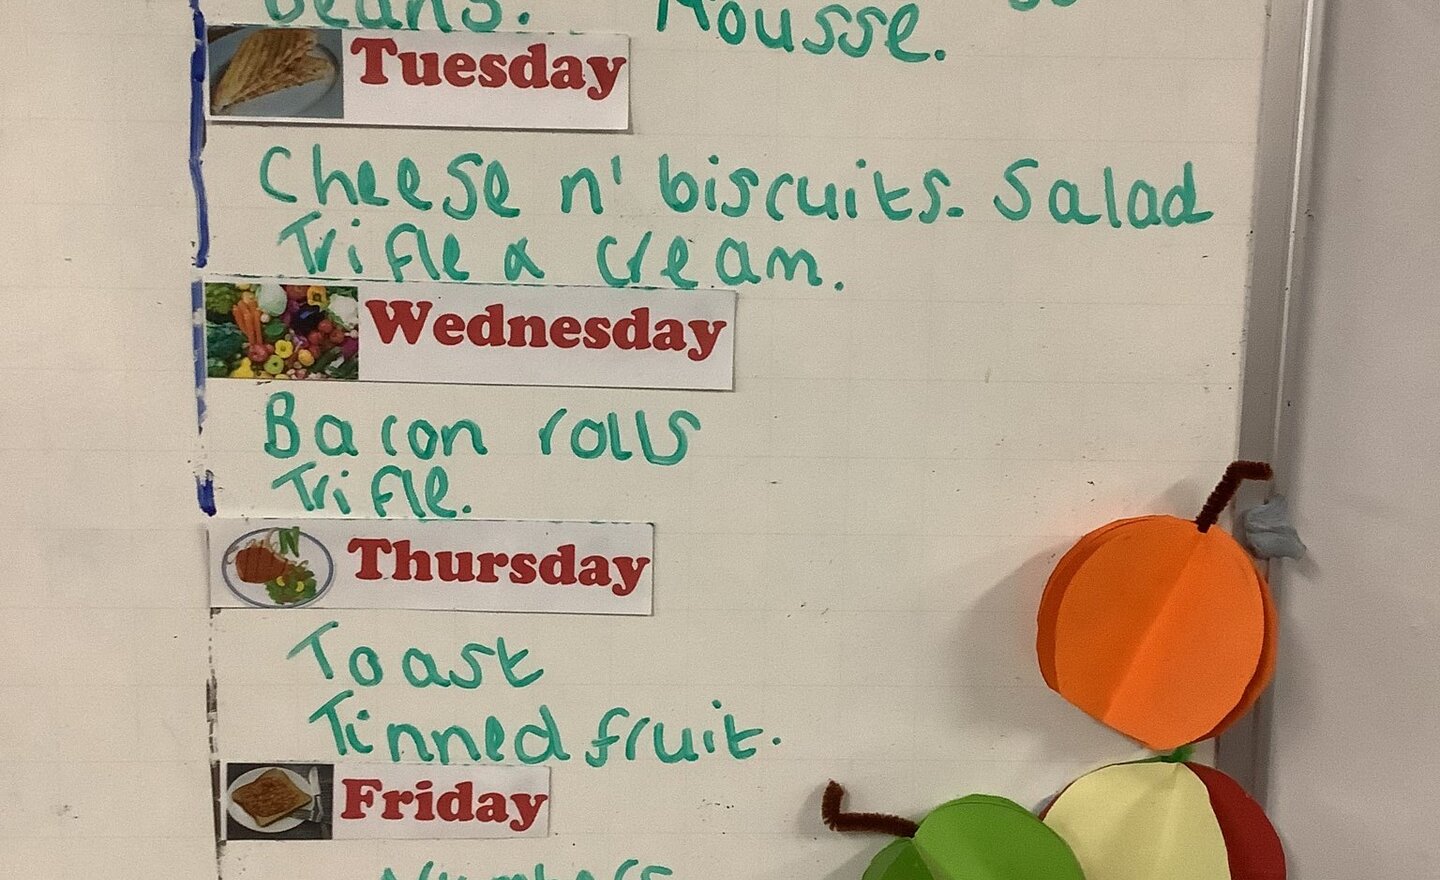 Beans. Mousse.
Tuesday
Cheese n' biscuits. Salad
Trifle & cream.
Wednesday
Bacon rolls
Trifle.
Thursday
Toast
Tinned fruit.
Friday